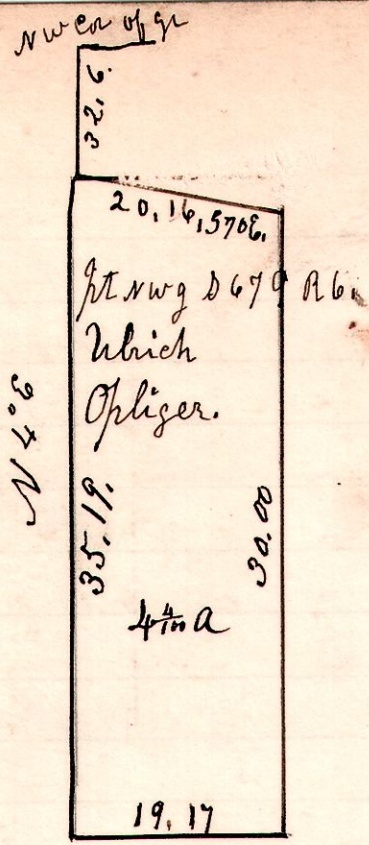 NW Cor of qr
32.6.
20,16,570E.
pt NWq S 67 R 6.
Ulrich
Opliger.
N 4°E
35.19.
30.00
4 4/100 A
19.17